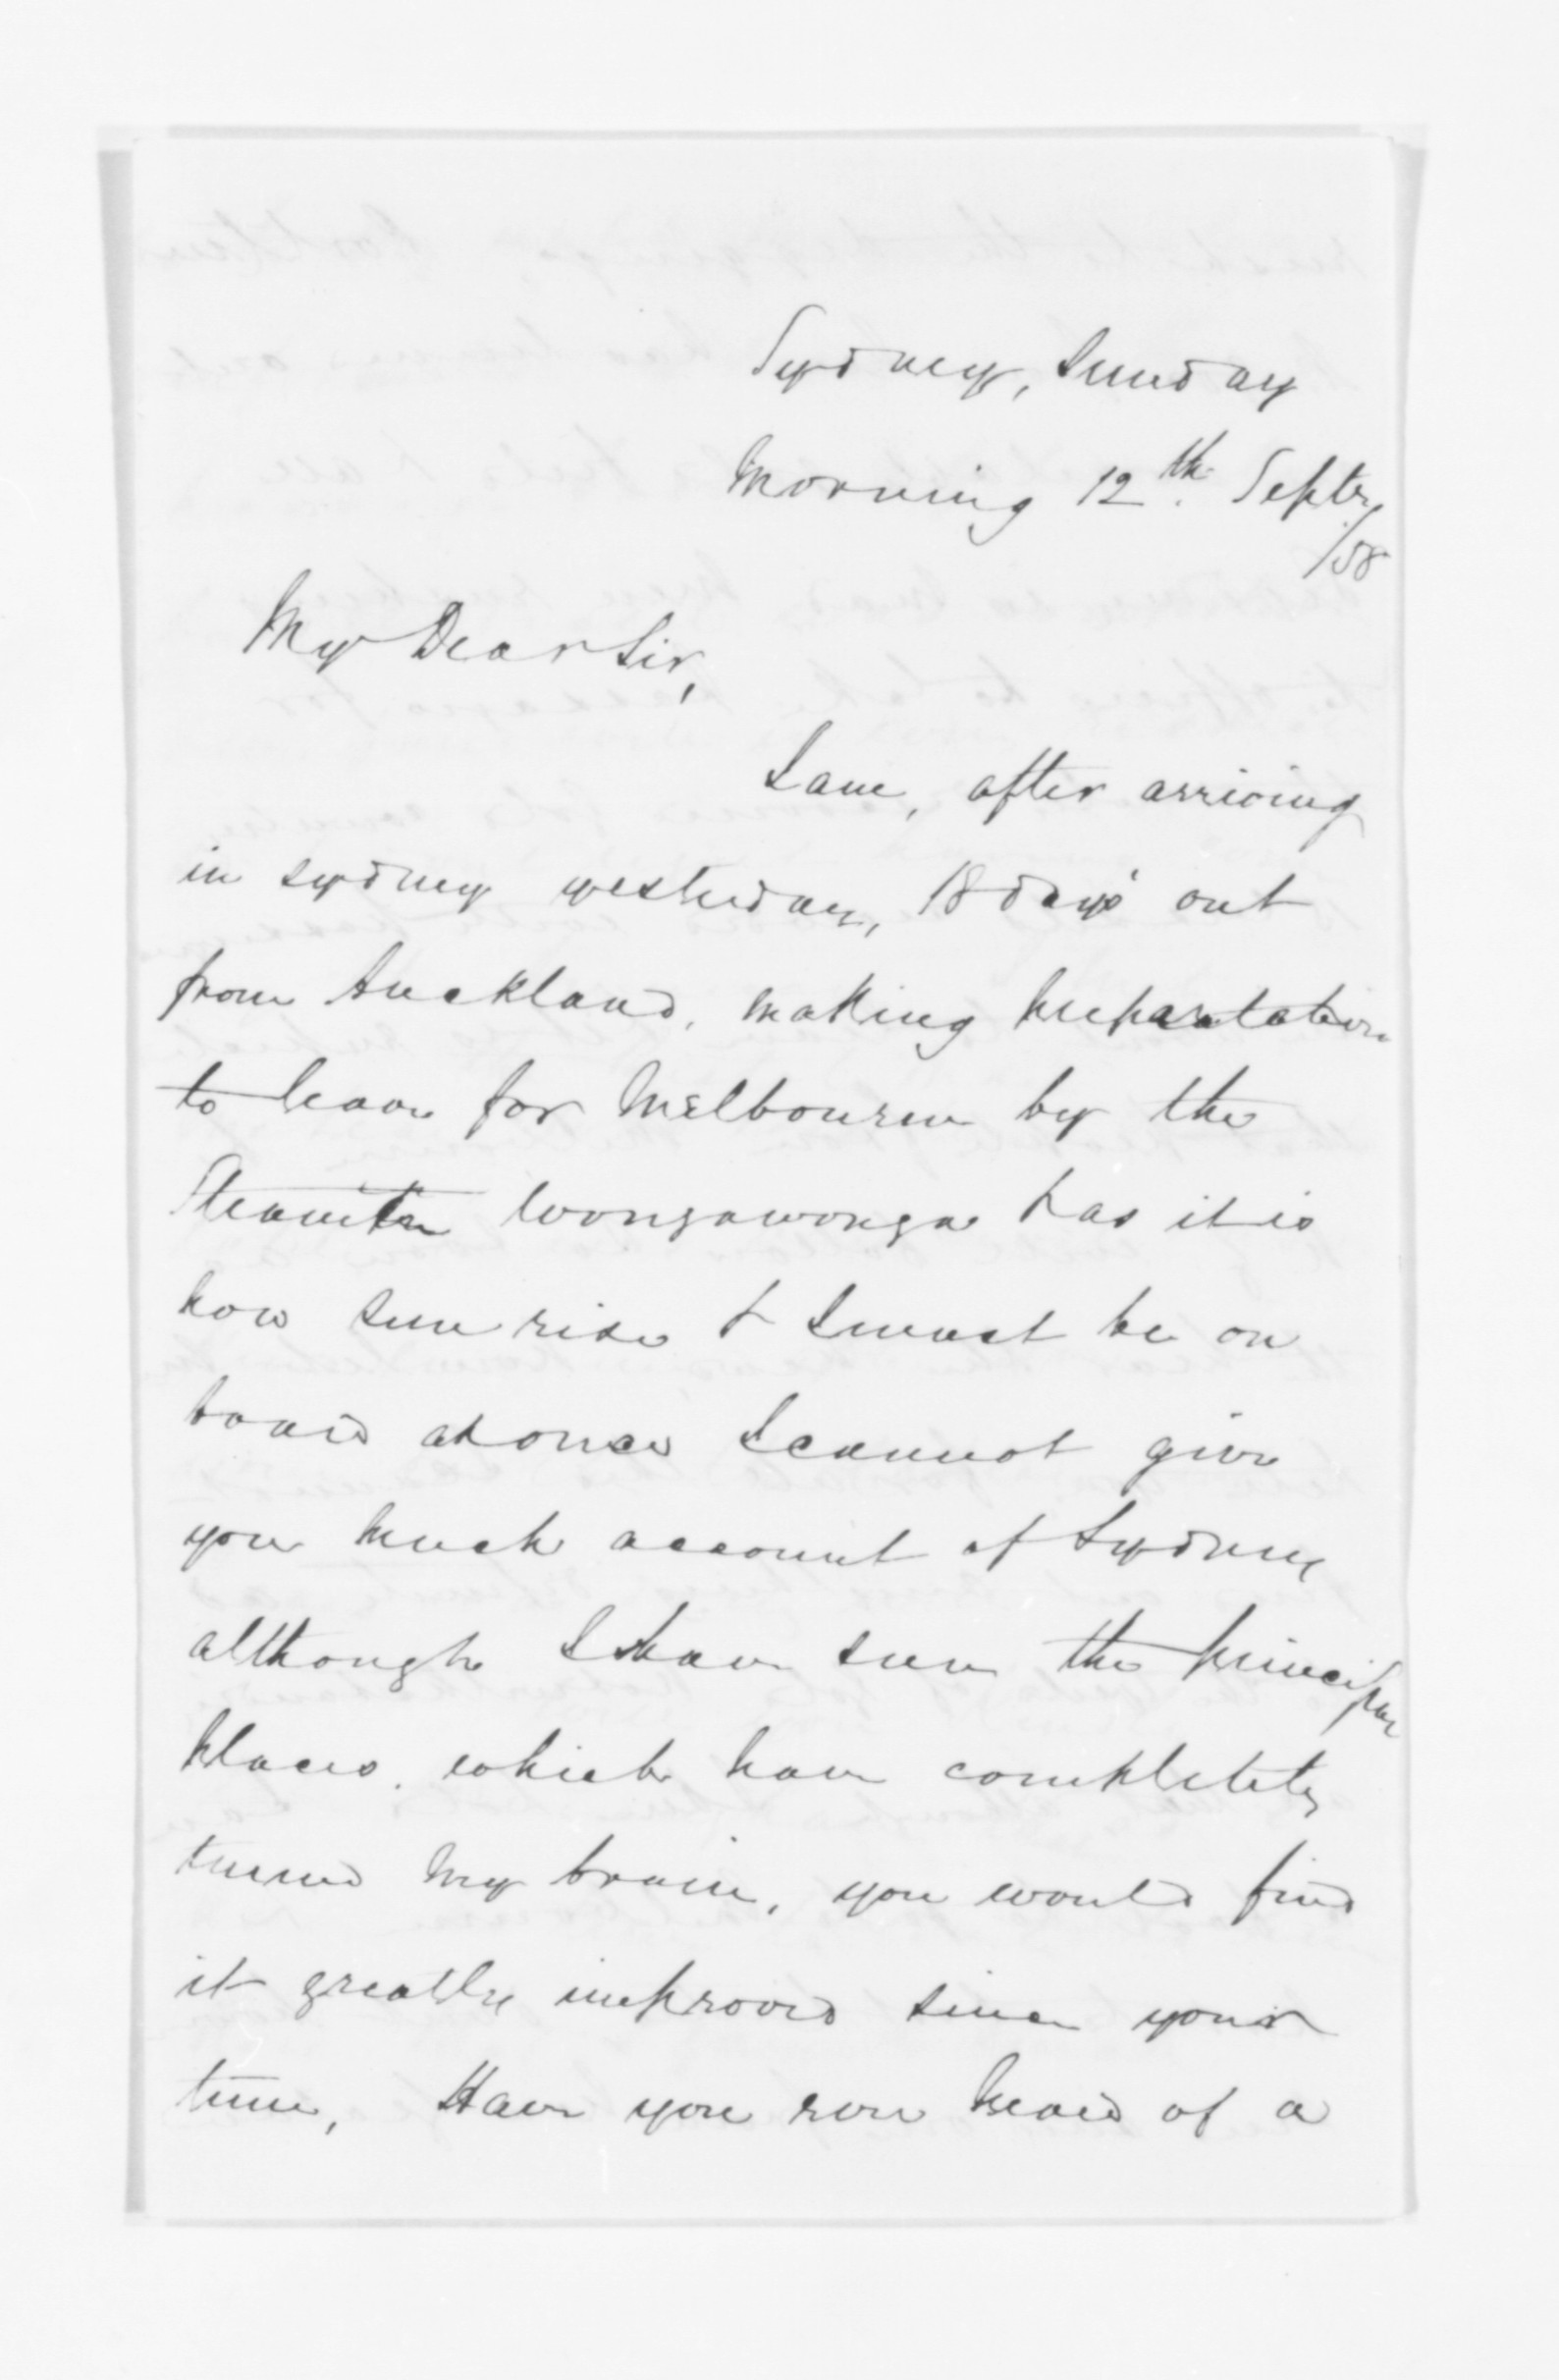 Sydney, Sunday
Morning 12th. Septr,
/58
My Dear Sir,
I am, after arriving
in Sydney yesterday, 18 days out
from Auckland, making preparation
to leave for Melbourne by the
Steamer Wongawonga & as it is
now sun rise & I must be on
board at once I cannot give
you much account of Sydney
although I have seen the principal
places. which have completely
turned my brain, you would find
it greatly improved since your
time, Have you ever heard of a